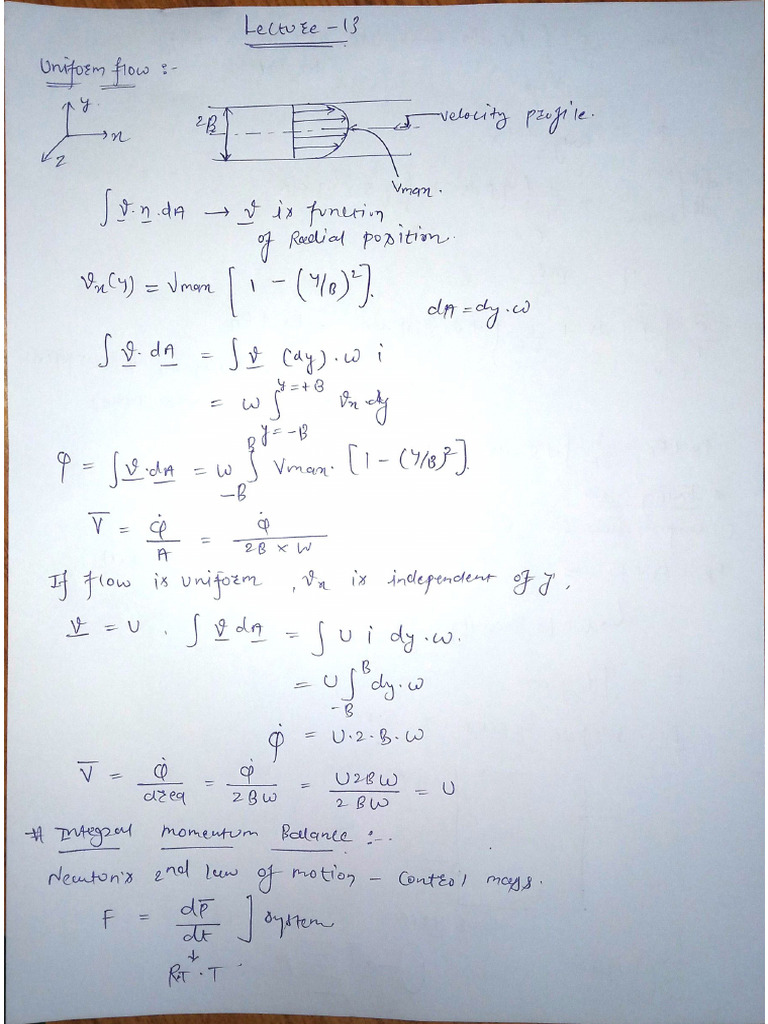 Lecture - 13
Uniform flow :-
y
x
z
2B
velocity profile.
Vmax.
∫ v.n.dA → v is function
of Radial position.
vx(y) = Vmax [1 - (y/B)²].
dA = dy.w
∫ v.dA = ∫ v (dy).w i
= w ∫_{y=-B}^{y=+B} vx.dy
φ = ∫ v.dA = w ∫_{-B}^{B} Vmax. [1 - (y/B)²].
V̅ = φ̇/A = φ̇/(2B × W)
If flow is uniform, vx is independent of y,
v = U . ∫ v dA = ∫ U i dy.w.
= U ∫_{-B}^{B} dy.w
φ̇ = U.2.B.w
V̅ = φ̇/area = φ̇/2BW = U2BW/2BW = U
# Integral Momentum Balance :-.
Newton's 2nd law of motion - control mass.
F = dp̅/dt ] system
↓
R.T.T